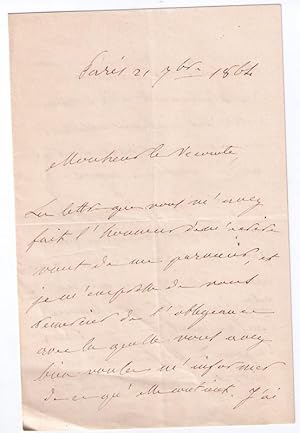 Paris 21 7bre 1864
Monsieur le Vicomte,
La lettre que vous m'avez
fait l'honneur de m'écrire
vient de me parvenir, et
je m'empresse de vous
remercier de l'obligeance
avec laquelle vous avez
bien voulu m'informer
de ce qu'elle contient. J'ai